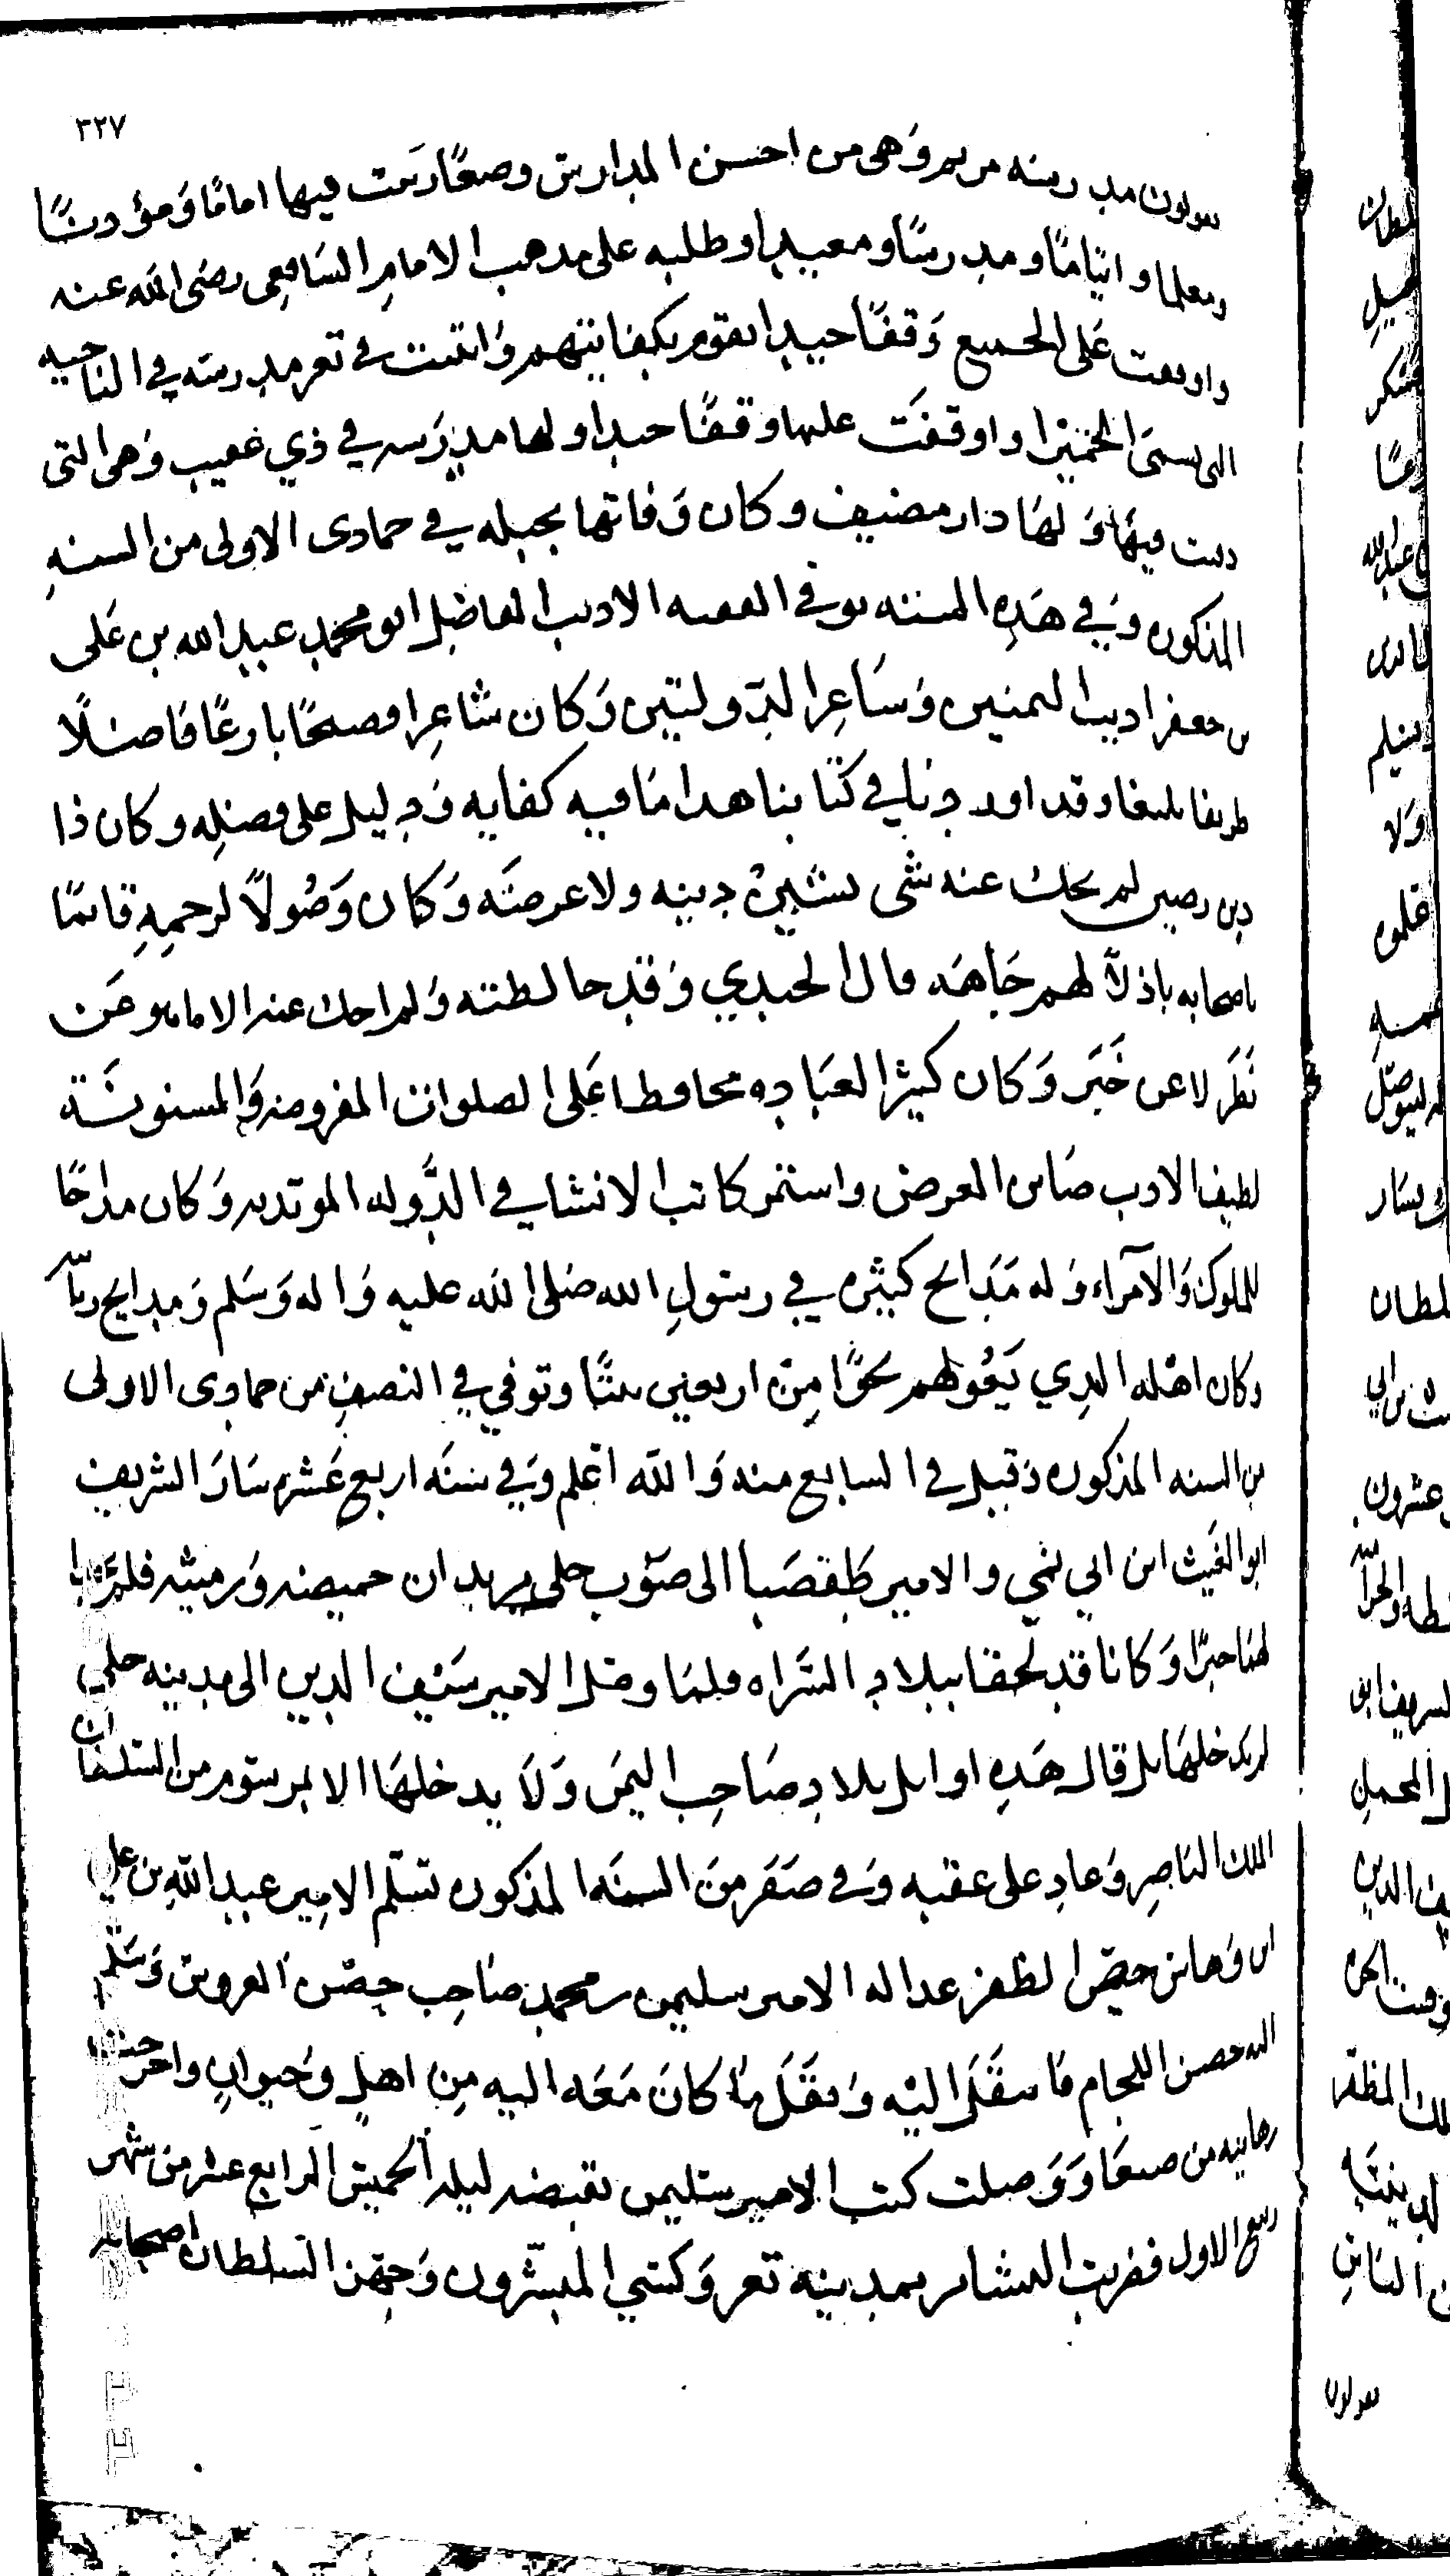 ٣٢٧
يقولون مدرسة مريم وهي من احسن المدارس وضعًا رتبت فيها امامًا ومؤذنًا
ومعلما وايتامًا ومدرسًا ومعيدا وطلبه على مذهب الامام الشافعي رضى الله عنه
واوقفت على الجميع وقفًا جيدا يقوم بكفايتهم وابتنت في تعز مدرسه في الناحيه
التى تسمى الحميرا واوقفت عليها وقفًا جيدا ولها مدرسه في ذي عقيب وهى التى
دفنت فيها ولها دار مضيف وكان وفاتها بجبله في جمادى الاولى من السنه
المذكوره وفي هذه السنه توفى الفقيه الاديب الفاضل ابو محمد عبد الله بن على
بن جعفر اديب اليمنين وشاعر الدولتين وكان شاعرا فصيحًا بارعًا فاضلًا
ظريفا بليغا وقد اوردنا في كتابنا هذا ما فيه كفايه ودليل على فضله وكان ذا
دين رصين لم يحك عنه شى يشين دينه ولا عرضه وكان وصولًا لرحمه قائمًا
باصحابه باذلًا لهم جاهه قال الجندي وقد خالطته ولم احك عنه الا ما هو عن
نظر لا عن خبر وكان كثير العباده محافظا على الصلوات المفروضه والمسنونة
لطيف الادب صاين العرض واستمر كاتب الانشا في الدوله المويديه وكان مداحًا
للملوك والامراء وله مدائح كثيره في رسول الله صلى الله عليه واله وسلم ومدايح ربانيه
وكان اهله الذي يعولهم نحوًا من اربعين بيتًا وتوفي في النصف من جمادى الاولى
من السنه المذكوره وقيل في السابع منه والله اعلم وفي سنه اربع عشره سار الشريف
ابو الغيث ابن ابي نمي والامير طقصبا الى صوب حلي يريدان حميضه ورميثه فلم يجدا
لهما خبرًا وكانا قد لحقا ببلاد السراه فلما وصل الامير سيف الدين الى مدينه حلي
لم يدخلها بل قال هذه اوايل بلاد صاحب اليمن ولا يدخلها الا بمرسوم من السلطان
الملك الناصر وعاد على عقبه وفي صفر من السنه المذكوره تسلم الامير عبد الله بن علي
ابن وهاس حصن الظفر عداله الامير سليمن بن محمد صاحب حصن العروس وسلم
اليه حصن اللجام فانتقل اليه ونقل ما كان معه اليه من اهل وحيوان واخرجت
رهاينه من صنعا ووصلت كتب الامير سليمن بقبضه ليله الخميس الرابع عشر من شهر
ربيع الاول فضربت البشاير بمدينه تعز وكسي المبشرون وجهز السلطان اصحابه